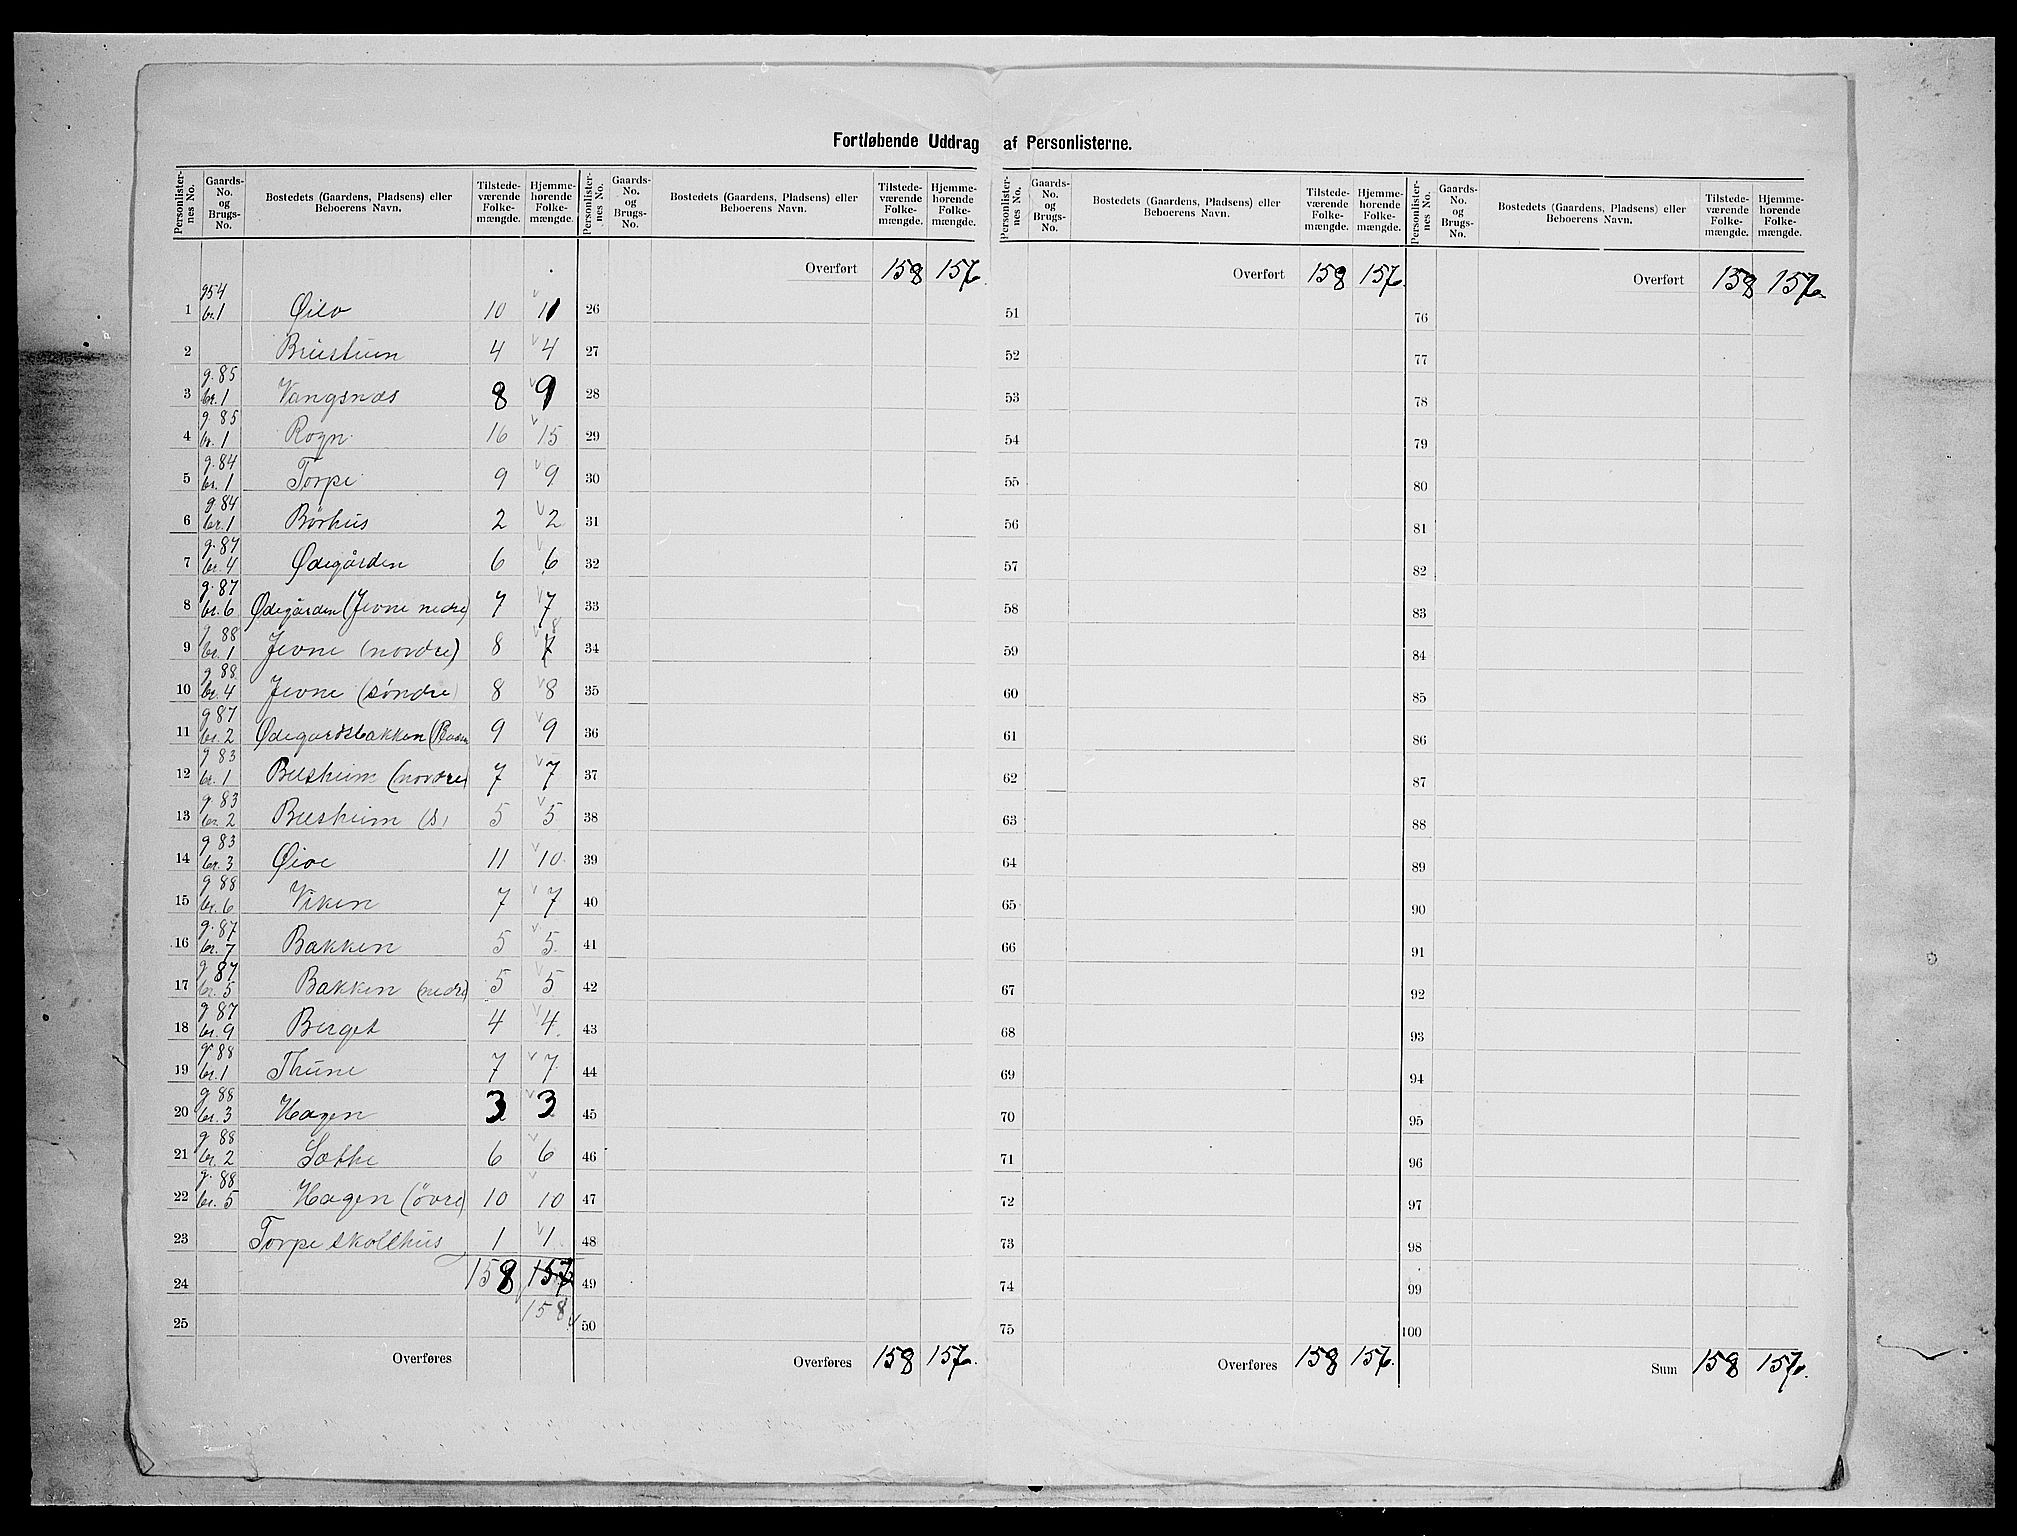 Fortløbende Uddrag af Personlisterne.
Personlister-nes No. Gaards-No. og Brugs-No. Bostedets (Gaardens, Pladsens) eller Beboerens Navn. Tilstede-værende Folke-mængde. Hjemme-hørende Folke-mængde.
Personlister-nes No. Gaards-No. og Brugs-No. Bostedets (Gaardens, Pladsens) eller Beboerens Navn. Tilstede-værende Folke-mængde. Hjemme-hørende Folke-mængde.
Personlister-nes No. Gaards-No. og Brugs-No. Bostedets (Gaardens, Pladsens) eller Beboerens Navn. Tilstede-værende Folke-mængde. Hjemme-hørende Folke-mængde.
Personlister-nes No. Gaards-No. og Brugs-No. Bostedets (Gaardens, Pladsens) eller Beboerens Navn. Tilstede-værende Folke-mængde. Hjemme-hørende Folke-mængde.
Overført 158 157. Overført 158 157. Overført 158 157.
1 br. 1 Øilo 10 11 26 51 76
2 4 4 27 52 77
3 g. 85 br. 1 Vangsnæs 8 9 28 53 78
4 g. 85 br. 1 Rogn 16 15 29 54 79
5 g. 84 br. 1 Torpe 9 9 30 55 80
6 g. 84 br. 1 Børhus 2 2 31 56 81
7 g. 87 br. 4 Ødegården 6 6 32 57 82
8 g. 87 br. 6 Ødegården (Jevne nedre) 7 7 33 58 83
9 g. 88 br. 1 Jevne (nordre) 8 7 8 34 59 84
10 g. 88 br. 4 Jevne (søndre) 8 8 35 60 85
11 g. 87 br. 2 Ødegardsbakken 9 9 36 61 86
12 g. 83 br. 1 Belsheim (nordre) 7 7 37 62 87
13 g. 83 br. 2 Belsheim (s) 5 5 38 63 88
14 g. 83 br. 3 Øioe 11 10 39 64 89
15 g. 88 br. 6 Viken 7 7 40 65 90
16 g. 87 br. 7 Bakken 5 5 41 66 91
17 g. 87 br. 5 Bakken (nedre) 5 5 42 67 92
18 g. 87 br. 9 Berget 4 4 43 68 93
19 g. 88 br. 1 Thune 7 7 44 69 94
20 g. 88 br. 3 Hagen 3 3 45 70 95
21 g. 88 br. 2 6 6 46 71 96
22 g. 88 br. 5 Hagen (övre) 10 10 47 72 97
23 Torpe skolehus 1 1 48 73 98
24 158 157 49 74 99
25 158 50 75 100
Overføres Overføres 158 157. Overføres 158 157. Sum 158 157.